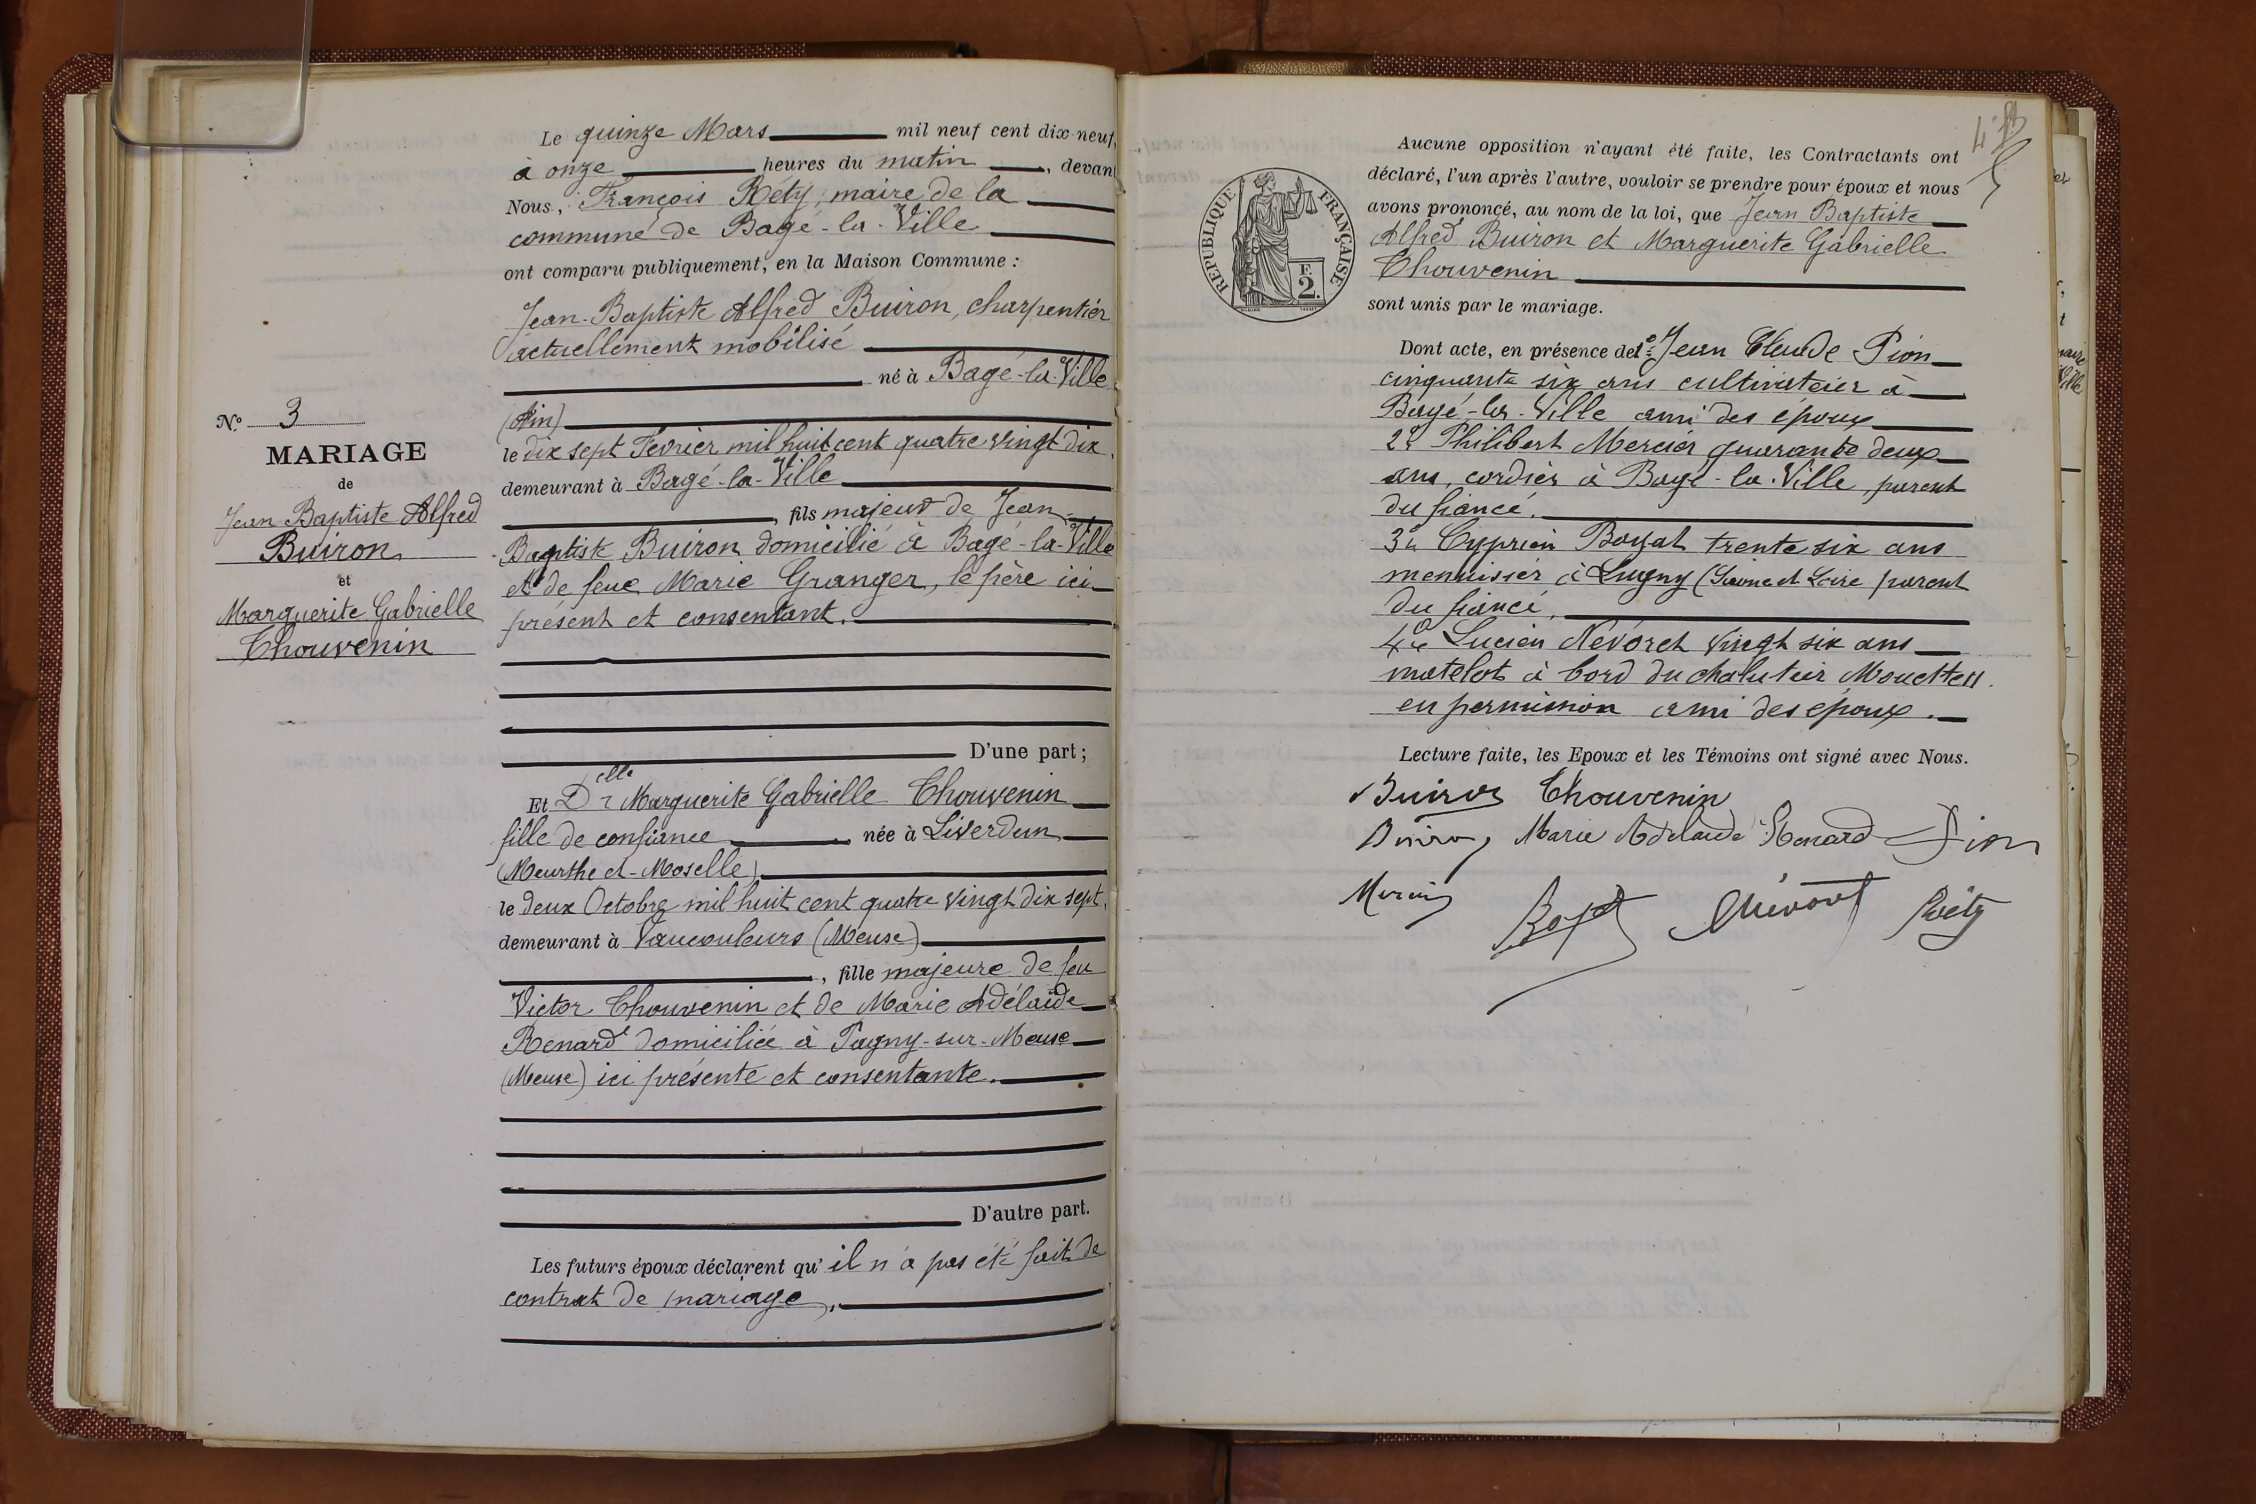 Le quinze Mars mil neuf cent dix-neuf,
à onze heures du matin, devan
Nous, François Réty, maire de la
commune de Bagé-la-Ville
ont comparu publiquement, en la Maison Commune :
Jean-Baptiste Alfred Buiron, charpentier
actuellement mobilisé
né à Bagé-la-Ville
(Ain)
le dix sept Février mil huit cent quatre vingt dix.
demeurant à Bagé-la-Ville
, fils majeur de Jean-
Baptiste Buiron domicilié à Bagé-la-Ville
et de feue Marie Granger, le père ici
présent et consentant.
D'une part ;
N° 3
MARIAGE
de
Jean Baptiste Alfred
Buiron
et
Marguerite Gabrielle
Thouvenin
Et Delle Marguerite Gabrielle Thouvenin
fille de confiance née à Liverdun
(Meurthe et-Moselle)
le deux Octobre mil huit cent quatre vingt dix sept.
demeurant à Vaucouleurs (Meuse)
, fille majeure de feu
Victor Thouvenin et de Marie Adélaïde
Renard domiciliée à Pagny-sur-Meuse
(Meuse) ici présente et consentante.
D'autre part.
Les futurs époux déclarent qu'il n'a pas été fait de
contrat de mariage.
Aucune opposition n'ayant été faite, les Contractants ont
déclaré, l'un après l'autre, vouloir se prendre pour époux et nous
avons prononcé, au nom de la loi, que Jean Baptiste
Alfred Buiron et Marguerite Gabrielle
Thouvenin
sont unis par le mariage.
RÉPUBLIQUE FRANÇAISE
F.
2.
Dont acte, en présence de 1° Jean Claude Pion
cinquante six ans cultivateur à
Bagé-la-Ville ami des époux
2° Philibert Mercier quarante deux
ans, cordier à Bagé-la-Ville parent
du fiancé.
3° Cyprien Boyat trente six ans
menuisier à Lugny (Saône et Loire parent
du fiancé.
4° Lucien Névoret vingt six ans
matelot à bord du chalutier Mouette II
en permission ami des époux.
Lecture faite, les Epoux et les Témoins ont signé avec Nous.
Buiron Thouvenin
Buiron Marie Adelaide Renard Pion
Mercier Boyat Névoret Réty